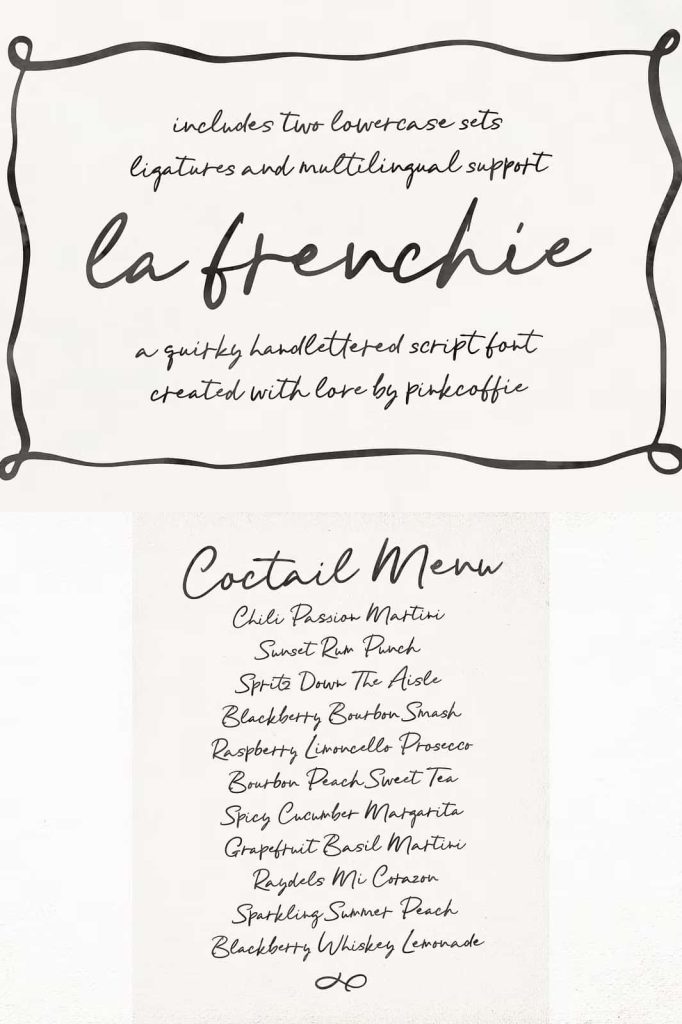 includes two lowercase sets
ligatures and multilingual support
la frenchie
a quirky handlettered script font
created with love by pinkcoffie
Coctail Menu
Chili Passion Martini
Sunset Rum Punch
Spritz Down The Aisle
Blackberry Bourbon Smash
Raspberry Limoncello Prosecco
Bourbon Peach Sweet Tea
Spicy Cucumber Margarita
Grapefruit Basil Martini
Raydels Mi Corazon
Sparkling Summer Peach
Blackberry Whiskey Lemonade